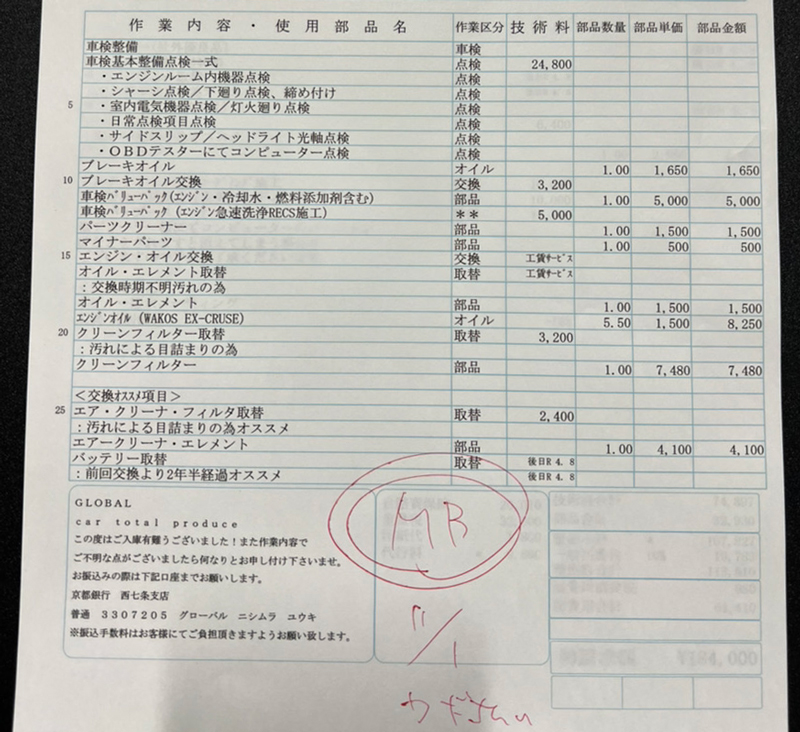 作業内容・使用部品名 作業区分 技術料 部品数量 部品単価 部品金額
車検整備 車検
車検基本整備点検一式 点検 24,800
・エンジンルーム内機器点検 点検
・シャーシ点検／下廻り点検、締め付け 点検
5 ・室内電気機器点検／灯火廻り点検 点検
・日常点検項目点検 点検
・サイドスリップ／ヘッドライト光軸点検 点検
・ＯＢＤテスターにてコンピューター点検 点検
ブレーキオイル オイル 1.00 1,650 1,650
10 ブレーキオイル交換 交換 3,200
車検ﾊﾞﾘｭｰﾊﾟｯｸ(ｴﾝｼﾞﾝ・冷却水・燃料添加剤含む) 部品 1.00 5,000 5,000
車検ﾊﾞﾘｭｰﾊﾟｯｸ (ｴﾝｼﾞﾝ急速洗浄RECS施工) ＊＊ 5,000
パーツクリーナー 部品 1.00 1,500 1,500
マイナーパーツ 部品 1.00 500 500
15 エンジン・オイル交換 交換 工賃ｻｰﾋﾞｽ
オイル・エレメント取替 取替 工賃ｻｰﾋﾞｽ
：交換時期不明汚れの為
オイル・エレメント 部品 1.00 1,500 1,500
ｴﾝｼﾞﾝｵｲﾙ (WAKOS EX-CRUSE) オイル 5.50 1,500 8,250
20 クリーンフィルター取替 取替 3,200
：汚れによる目詰まりの為
クリーンフィルター 部品 1.00 7,480 7,480
＜交換ｵｽｽﾒ項目＞
25 エア・クリーナ・フィルタ取替 取替 2,400
：汚れによる目詰まりの為オススメ
エアークリーナ・エレメント 部品 1.00 4,100 4,100
バッテリー取替 取替 後日R4.8
：前回交換より2年半経過オススメ 後日R4.8
GLOBAL
car total produce
この度はご入庫有難うございました！また作業内容で
ご不明な点がございましたら何なりとお申し付け下さいませ。
お振込みの際は下記口座までお願いします。
京都銀行 西七条支店
普通 3307205 グローバル ニシムラ ユウキ
※振込手数料はお客様にてご負担頂きますようお願い致します。
MB
11/1